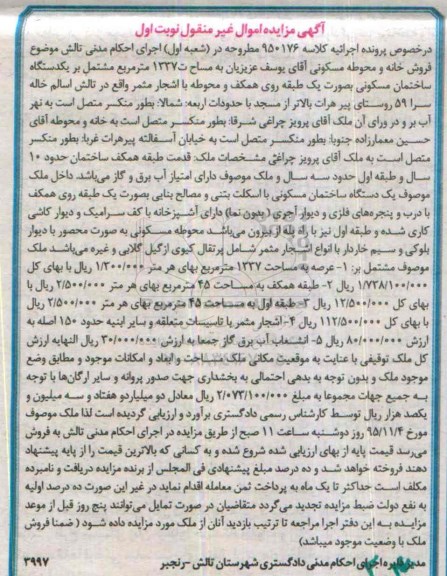 آگهی مزایده اموال غیر منقول نوبت اول
درخصوص پرونده اجرائیه کلاسه ۹۵۰۱۷۶ مطروحه در (شعبه اول) اجرای احکام مدنی تالش موضوع
فروش خانه و محوطه مسکونی آقای یوسف عزیزیان به مساحت ۱۳۳۷ مترمربع مشتمل بر یکدستگاه
ساختمان مسکونی بصورت یک طبقه روی همکف و محوطه با اشجار مثمر واقع در تالش اسالم خاله
سرا ۵۹ روستای پیر هرات بالاتر از مسجد با حدودات اربعه: شمالا: بطور منکسر متصل است به نهر
آب بر و در ورای آن ملک آقای پرویز چراغی شرقا: بطور منکسر متصل است به خانه و محوطه آقای
حسین معمارزاده جنوبا: بطور منکسر متصل است به خیابان آسفالته پیرهرات غربا: بطور منکسر
متصل است به ملک آقای پرویز چراغی مشخصات ملک: قدمت طبقه همکف ساختمان حدود ۱۰
سال و طبقه اول حدود سه سال و ملک موصوف دارای امتیاز آب برق و گاز می‌باشد. داخل ملک
موصوف یک دستگاه ساختمان مسکونی با اسکلت بتنی و مصالح بنایی بصورت یک طبقه روی همکف
با درب و پنجره‌های فلزی و دیوار آجری (بدون نما) دارای آشپزخانه با کف سرامیک و دیوار کاشی
کاری شده و طبقه اول نیز با راه پله از بیرون می‌باشد. محوطه مسکونی به صورت محصور با دیوار
بلوکی و سیم خاردار با انواع اشجار مثمر شامل پرتقال کیوی ازگیل گلابی و غیره می‌باشد ملک
موصوف مشتمل بر: ۱- عرصه به مساحت ۱۳۳۷ مترمربع بهای هر متر ۱/۳۰۰/۰۰۰ ریال با بهای کل
۱/۷۳۸/۱۰۰/۰۰۰ ریال ۲- طبقه همکف به مساحت ۴۵ مترمربع بهای هر متر ۲/۵۰۰/۰۰۰ ریال با
بهای کل ۱۲/۵۰۰/۰۰۰ ریال ۳- طبقه اول به مساحت ۴۵ مترمربع بهای هر متر ۲/۵۰۰/۰۰۰ ریال
با بهای کل ۱۱۲/۵۰۰/۰۰۰ ریال ۴- اشجار مثمر با تاسیسات متعلقه و سایر ابنیه حدود ۱۵۰ اصله به
ارزش ۸۰/۰۰۰/۰۰۰ ریال ۵- انشعاب آب برق گاز جمعا به ارزش ۳۰/۰۰۰/۰۰۰ ریال النهایه ارزش
کل ملک توقیفی با عنایت به موقعیت مکانی ملک مساحت و ابعاد و امکانات موجود و مطابق وضع
موجود ملک و بدون توجه به بدهی احتمالی به بخشداری جهت صدور پروانه و سایر ارگان‌ها با توجه
به جمیع جهات مجموعا به مبلغ ۲/۰۷۳/۱۰۰/۰۰۰ ریال معادل دو میلیاردو هفتاد و سه میلیون و
یکصد هزار ریال توسط کارشناس رسمی دادگستری برآورد و ارزیابی گردیده است لذا ملک موصوف
مورخ ۹۵/۱۱/۴ روز دوشنبه ساعت ۱۱ صبح از طریق مزایده در اجرای احکام مدنی تالش به فروش
می‌رسد قیمت پایه از بهای ارزیابی شده شروع شده و به کسانی که بالاترین قیمت را از پایه پیشنهاد
دهند فروخته خواهد شد و ده درصد مبلغ پیشنهادی فی المجلس از برنده مزایده دریافت و نامبرده
مکلف است حداکثر تا یک ماه به پرداخت ثمن معامله اقدام نماید در غیر این صورت ده درصد اولیه
به نفع دولت ضبط مزایده تجدید می‌گردد متقاضیان در صورت تمایل می‌توانند پنج روز قبل از موعد
مزایده به این دفتر اجرا مراجعه تا ترتیب بازدید آنان از ملک مورد مزایده داده شود (ضمنا فروش
ملک با وضعیت موجود میباشد)
مدیر دایره اجرای احکام مدنی دادگستری شهرستان تالش -رنجبر
۳۹۹۷